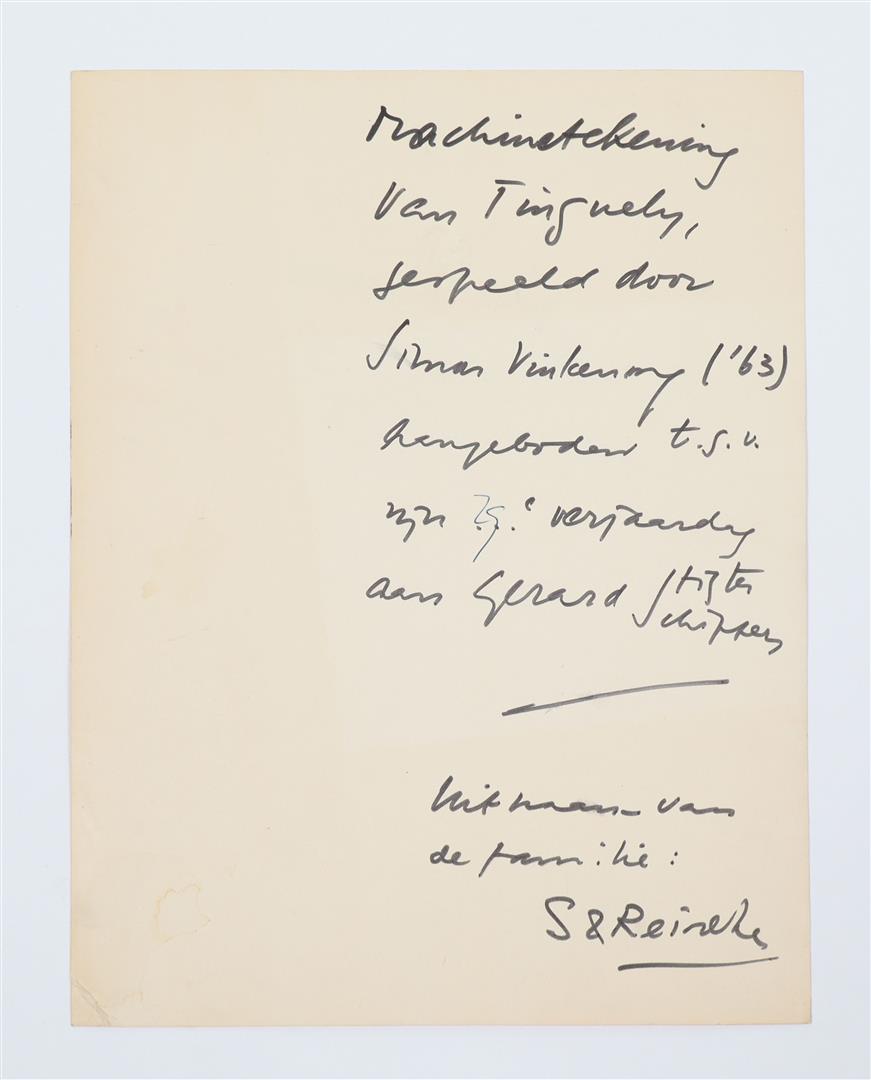 Machinetekening
van Tinguely,
gespeeld door
Simon Vinkenoog ('63)
aangeboden t.g.v.
zijn verjaardag
aan Gerard Stigter
Schippers
Uit naam van
de familie:
S & Reineke